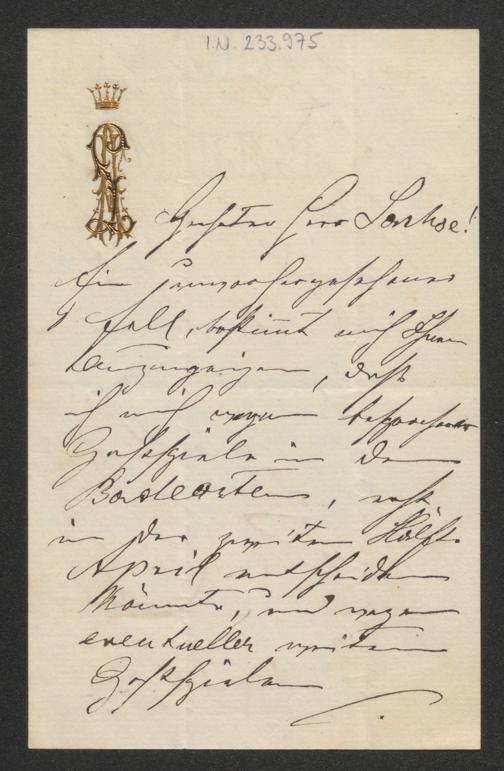 I.N. 233.975
Geehrter Herr Sachse!
Ein unvorhergesehener
Fall, bestimmt mich Ihnen
anzuzeigen, daß
ich mich wegen besprochener
Gastspiele in den
Badeorten, erst
in der zweiten Hälfte
April entscheiden
könnte, und wegen
eventueller weiteren
Gastspielen